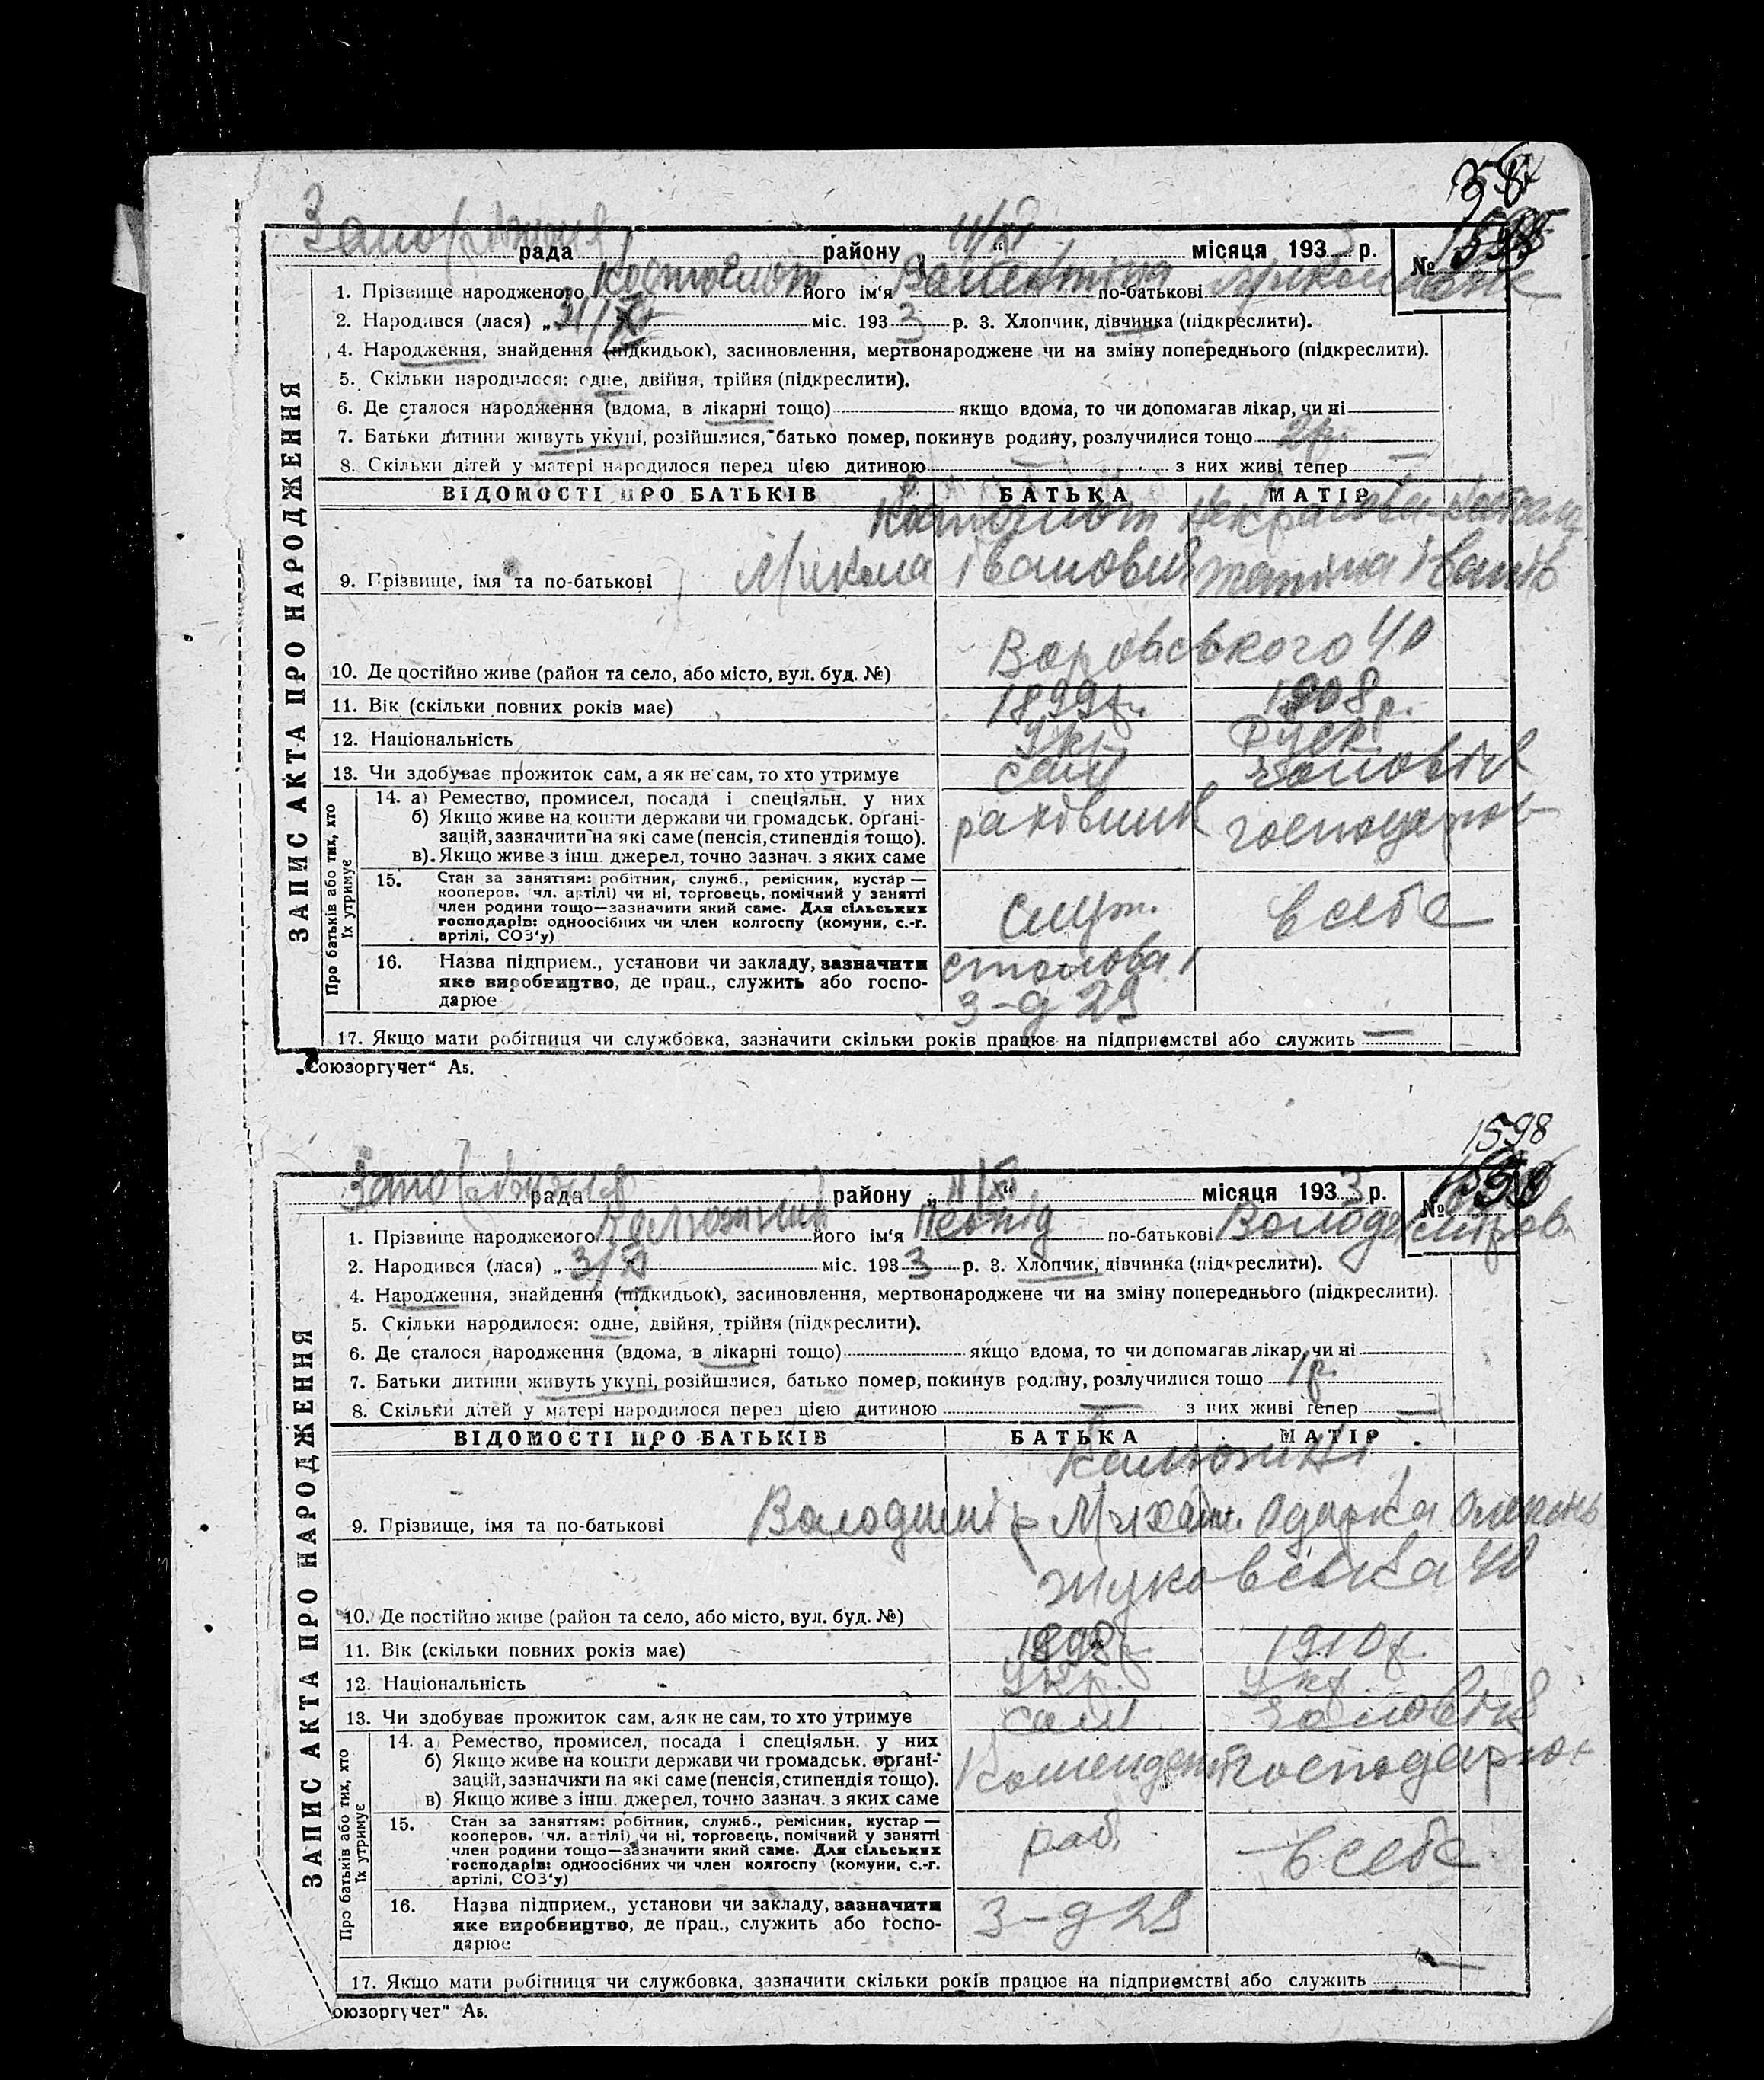 рада району місяця 193 3 р. №
1. Прізвище народженого його ім'я Валентина по-батькові
2. Народився (лася) „ 31/X “ міс. 193 3 р. 3. Хлопчик, дівчинка (підкреслити).
4. Народження, знайдення (підкидьок), засиновлення, мертвонароджене чи на зміну попереднього (підкреслити).
5. Скільки народилося: одне, двійня, трійня (підкреслити).
6. Де сталося народження (вдома, в лікарні тощо) якщо вдома, то чи допомагав лікар, чи ні
7. Батьки дитини живуть укупі, розійшлися, батько помер, покинув родину, розлучилися тощо 2р.
8. Скільки дітей у матері народилося перед цією дитиною — з них живі тепер —
ВІДОМОСТІ ПРО БАТЬКІВ БАТЬКА МАТІР
9. Прізвище, імя та по-батькові Микола Іванович
10. Де постійно живе (район та село, або місто, вул. буд. №) Воровського 40
11. Вік (скільки повних років має) 1899р. 1908р.
12. Національність Укр. Руск
13. Чи здобуває прожиток сам, а як не сам, то хто утримує сам чоловік
ЗАПИС АКТА ПРО НАРОДЖЕННЯ
Про батьків або тих, хто їх утримує
14. а) Ремество, промисел, посада і спеціяльн. у них
б) Якщо живе на кошти держави чи громадськ. органі-
зацій, зазначити на які саме (пенсія, стипендія тощо).
в). Якщо живе з інш. джерел, точно зазнач. з яких саме
рахівник господарюв
15. Стан за заняттям: робітник, служб., ремісник, кустар —
кооперов. чл. артілі) чи ні, торговець, помічний у занятті
член родини тощо—зазначити який саме. Для сільських
господарів: одноосібних чи член колгоспу (комуни, с.-г.
артілі, СОЗ'у)
служ. в себе
16. Назва підприєм., установи чи закладу, зазначити
яке виробництво, де прац., служить або госпо-
дарює
столова
3-д 29
17. Якщо мати робітниця чи службовка, зазначити скільки років працює на підприємстві або служить —
„Союзоргучет“ А5.
1598
рада району „ “ місяця 193 3 р. №
1. Прізвище народженого Калюжний його ім'я Леонід по-батькові Володиміров.
2. Народився (лася) „ 3/X “ міс. 193 3 р. 3. Хлопчик, дівчинка (підкреслити).
4. Народження, знайдення (підкидьок), засиновлення, мертвонароджене чи на зміну попереднього (підкреслити).
5. Скільки народилося: одне, двійня, трійня (підкреслити).
6. Де сталося народження (вдома, в лікарні тощо) якщо вдома, то чи допомагав лікар, чи ні
7. Батьки дитини живуть укупі, розійшлися, батько помер, покинув родину, розлучилися тощо 1р.
8. Скільки дітей у матері народилося перед цією дитиною — з них живі тепер —
ВІДОМОСТІ ПРО БАТЬКІВ БАТЬКА МАТІР
Калюжні
9. Прізвище, імя та по-батькові Володимір Михайл. Одарка
Жуковська 40
10. Де постійно живе (район та село, або місто, вул. буд. №)
11. Вік (скільки повних років має) 1898р. 1910р.
12. Національність Укр. Укр.
13. Чи здобуває прожиток сам, а як не сам, то хто утримує сам чоловік
ЗАПИС АКТА ПРО НАРОДЖЕННЯ
Про батьків або тих, хто їх утримує
14. а) Ремество, промисел, посада і спеціяльн. у них
б) Якщо живе на кошти держави чи громадськ. органі-
зацій, зазначити на які саме (пенсія, стипендія тощо).
в) Якщо живе з інш. джерел, точно зазнач. з яких саме
Комендант господарюв
15. Стан за заняттям: робітник, служб., ремісник, кустар —
кооперов. чл. артілі) чи ні, торговець, помічний у занятті
член родини тощо—зазначити який саме. Для сільських
господарів: одноосібних чи член колгоспу (комуни, с.-г.
артілі, СОЗ'у)
роб. в себе
16. Назва підприєм., установи чи закладу, зазначити
яке виробництво, де прац., служить або госпо-
дарює
3-д 29
17. Якщо мати робітниця чи службовка, зазначити скільки років працює на підприємстві або служить —
оюзоргучет“ А5.